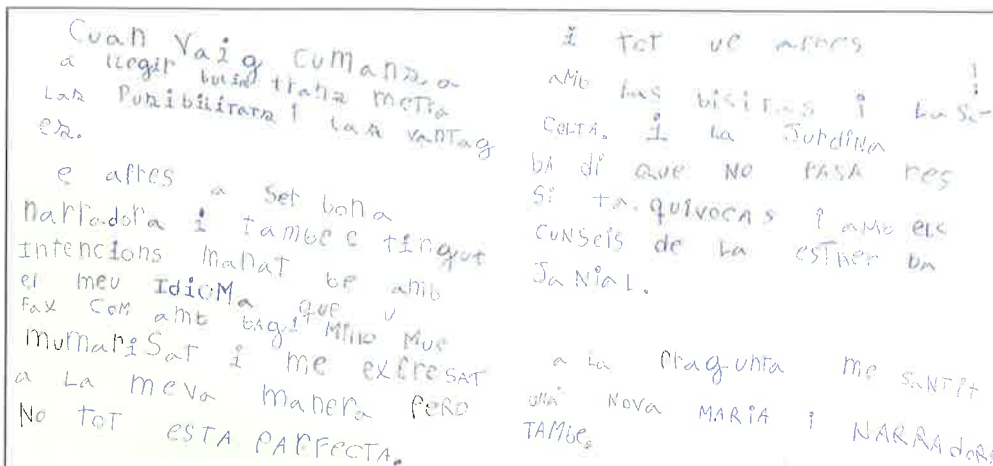 Cuan Vaig cumanza
a llegir bulia tranz metra
Laz Puzibilitatz i laz vantag
ez.
e apres a Ser bona
narradora i tambe e tingut
intencions manat be amb
el meu IdioMa que u
Fax COM amb
mumariSat i me expresat
a La meva manera PERO
No TOT ESTA PARFECTA.
i TOT ue apres
aMb Las bisitas i La Es-
COLTA. i La Jurdina
bA di QUE NO PASA res
Si ta.quivocas i aMb els
CUNSeiS de La ESTHER ba
Ja NiaL.
a La Pragunta me SaNTit
una NOVa MARIA i NARRAdORA
TAMbe.